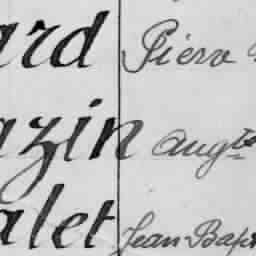 ard Pierre
azin Augte
alet Jean-Bap